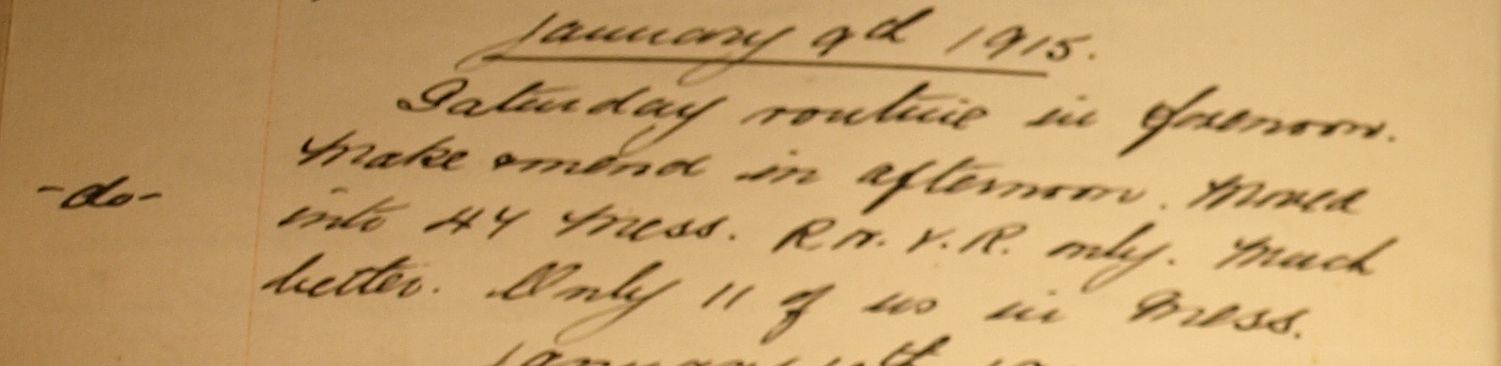 January 9th 1915.
Saturday routine in forenoon.
Make & mend in afternoon. Moved
-do-
into 44 mess. R.N.V.R. only. Much
better. Only 11 of us in mess.
January